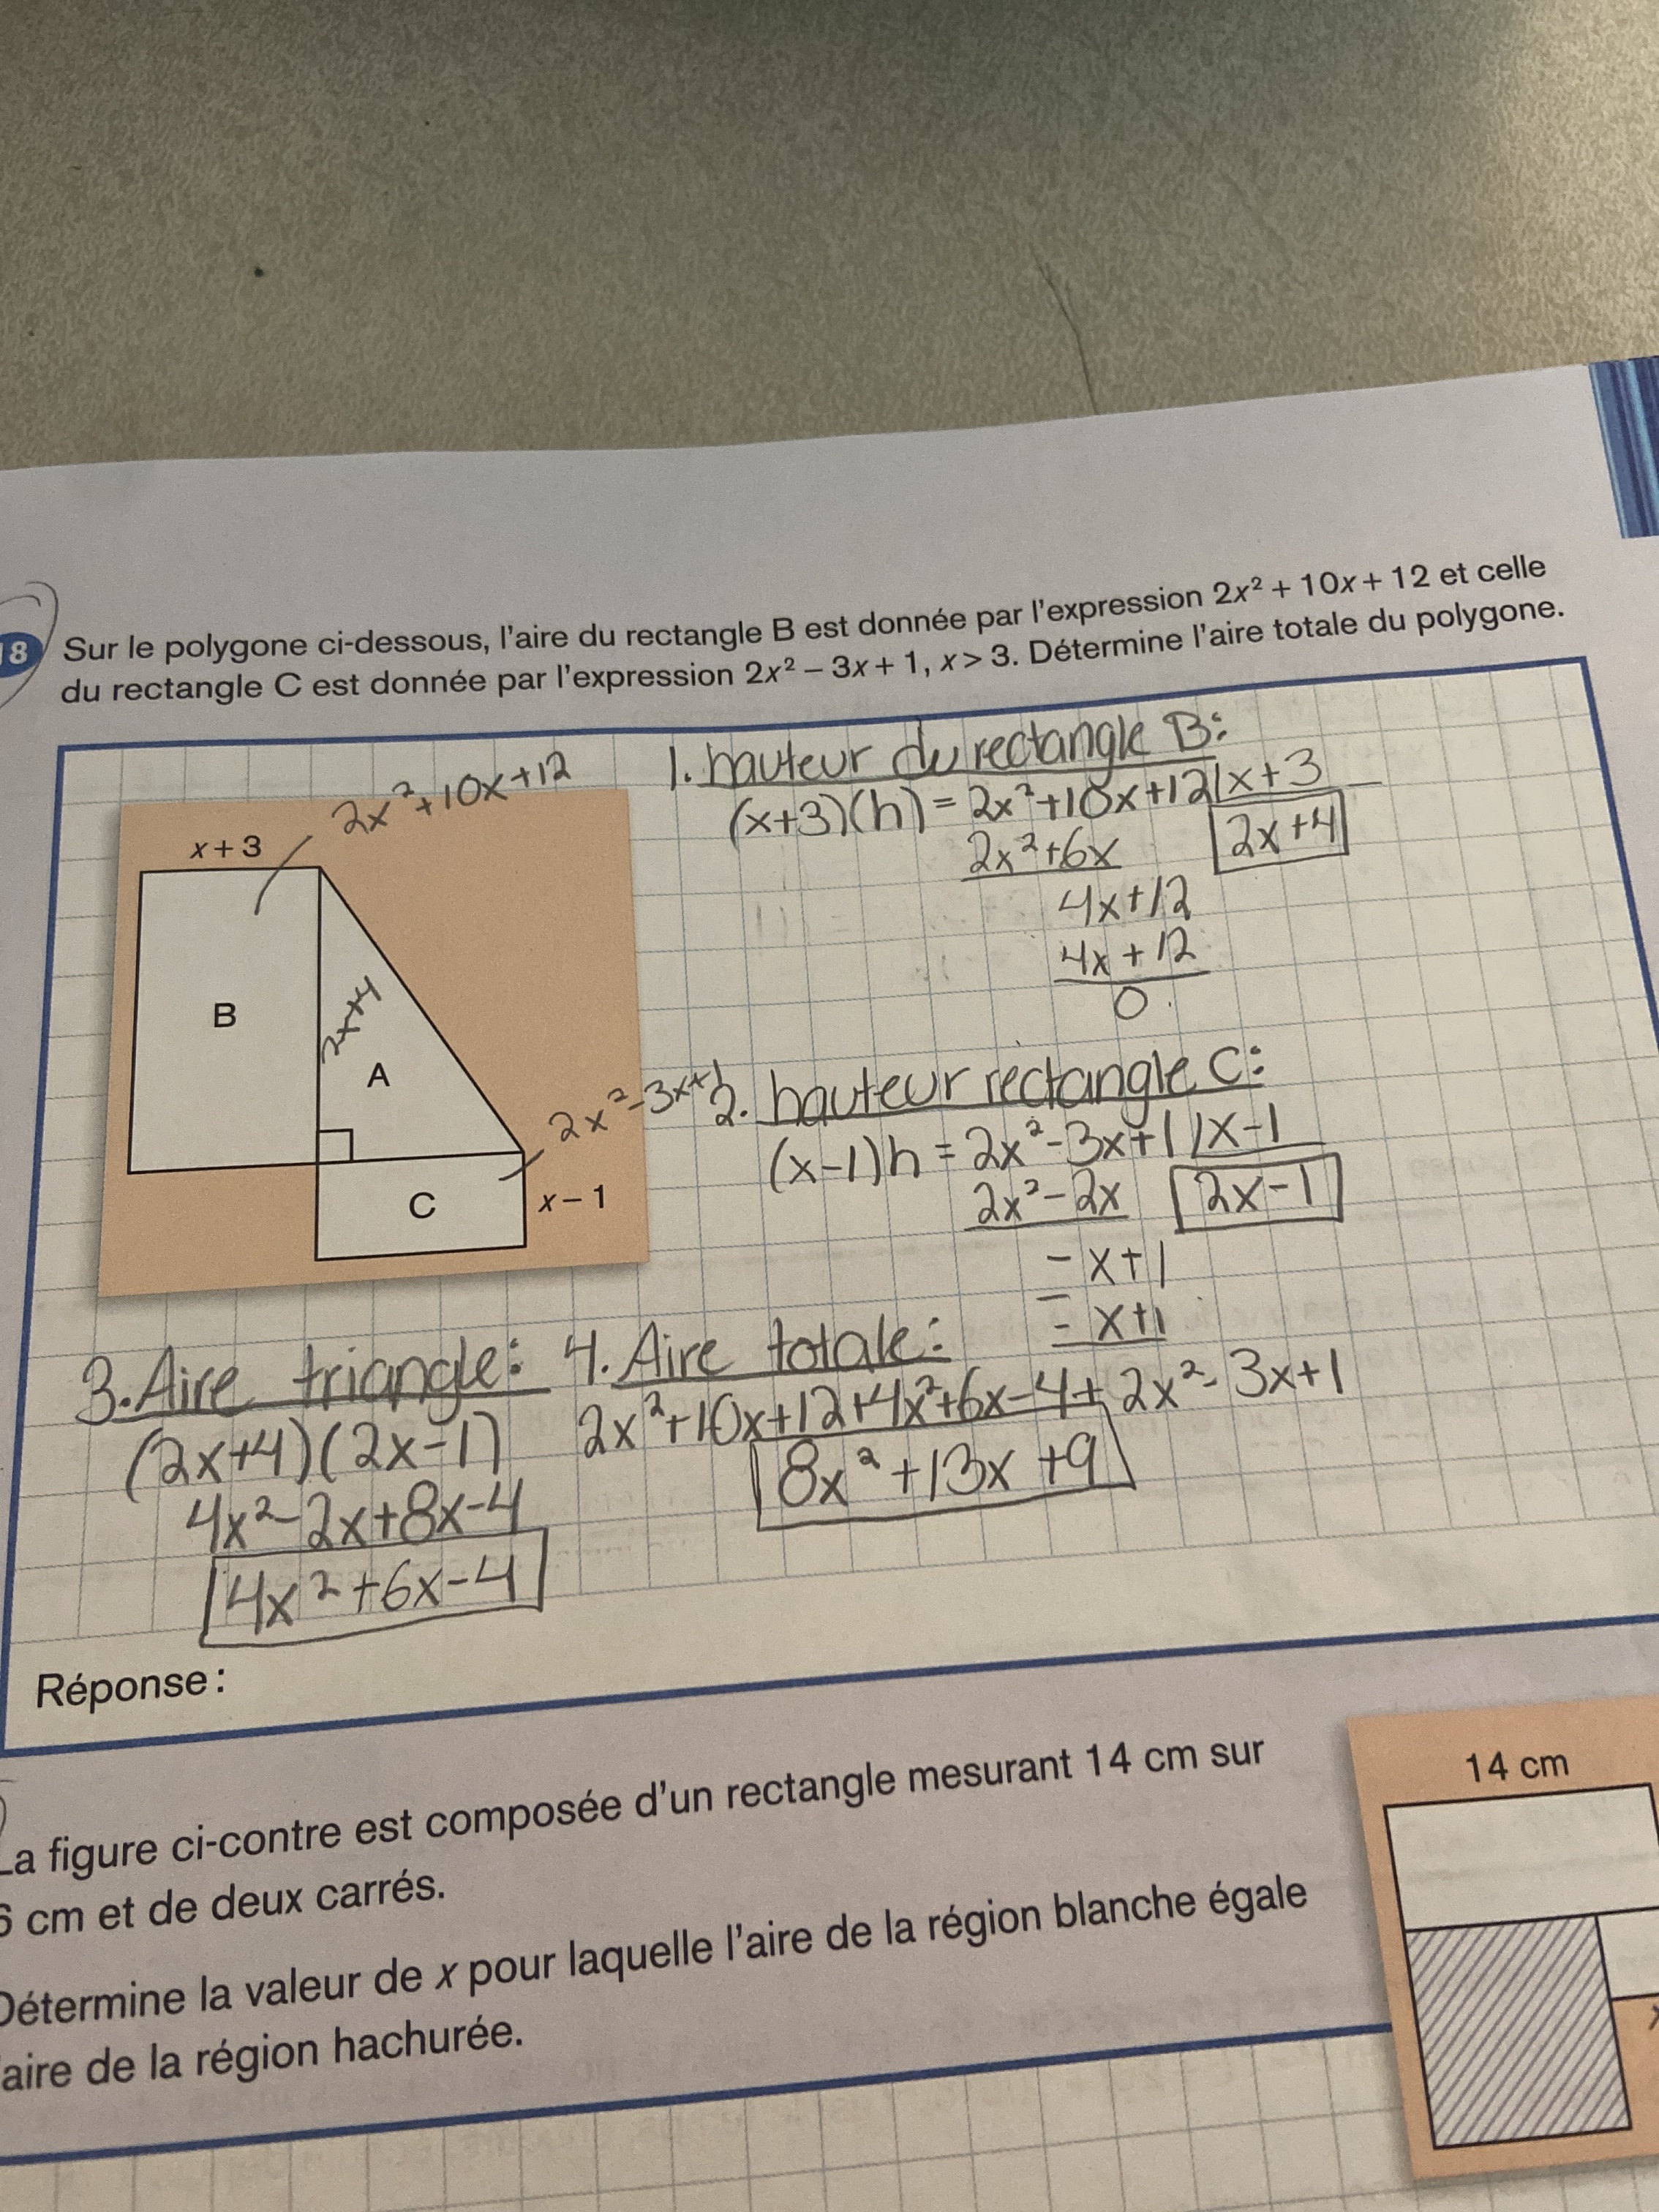 18 Sur le polygone ci-dessous, l'aire du rectangle B est donnée par l'expression 2x² + 10x + 12 et celle
du rectangle C est donnée par l'expression 2x² – 3x + 1, x > 3. Détermine l'aire totale du polygone.
2x²+10x+12
x + 3
B
2x+4
A
2x²-3x+1
C
x – 1
1. hauteur du rectangle B:
(x+3)(h) = 2x²+10x+12 | x+3
2x²+6x 2x+4
4x+12
4x+12
0
2. hauteur rectangle C:
(x-1)h = 2x²-3x+1 | x-1
2x²-2x 2x-1
-x+1
- -x+1
3. Aire triangle:
(2x+4)(2x-1)
4x²-2x+8x-4
4x²+6x-4
4. Aire totale:
2x²+10x+12+4x²+6x-4+2x²-3x+1
8x²+13x+9
Réponse :
La figure ci-contre est composée d'un rectangle mesurant 14 cm sur
6 cm et de deux carrés.
Détermine la valeur de x pour laquelle l'aire de la région blanche égale
l'aire de la région hachurée.
14 cm
x